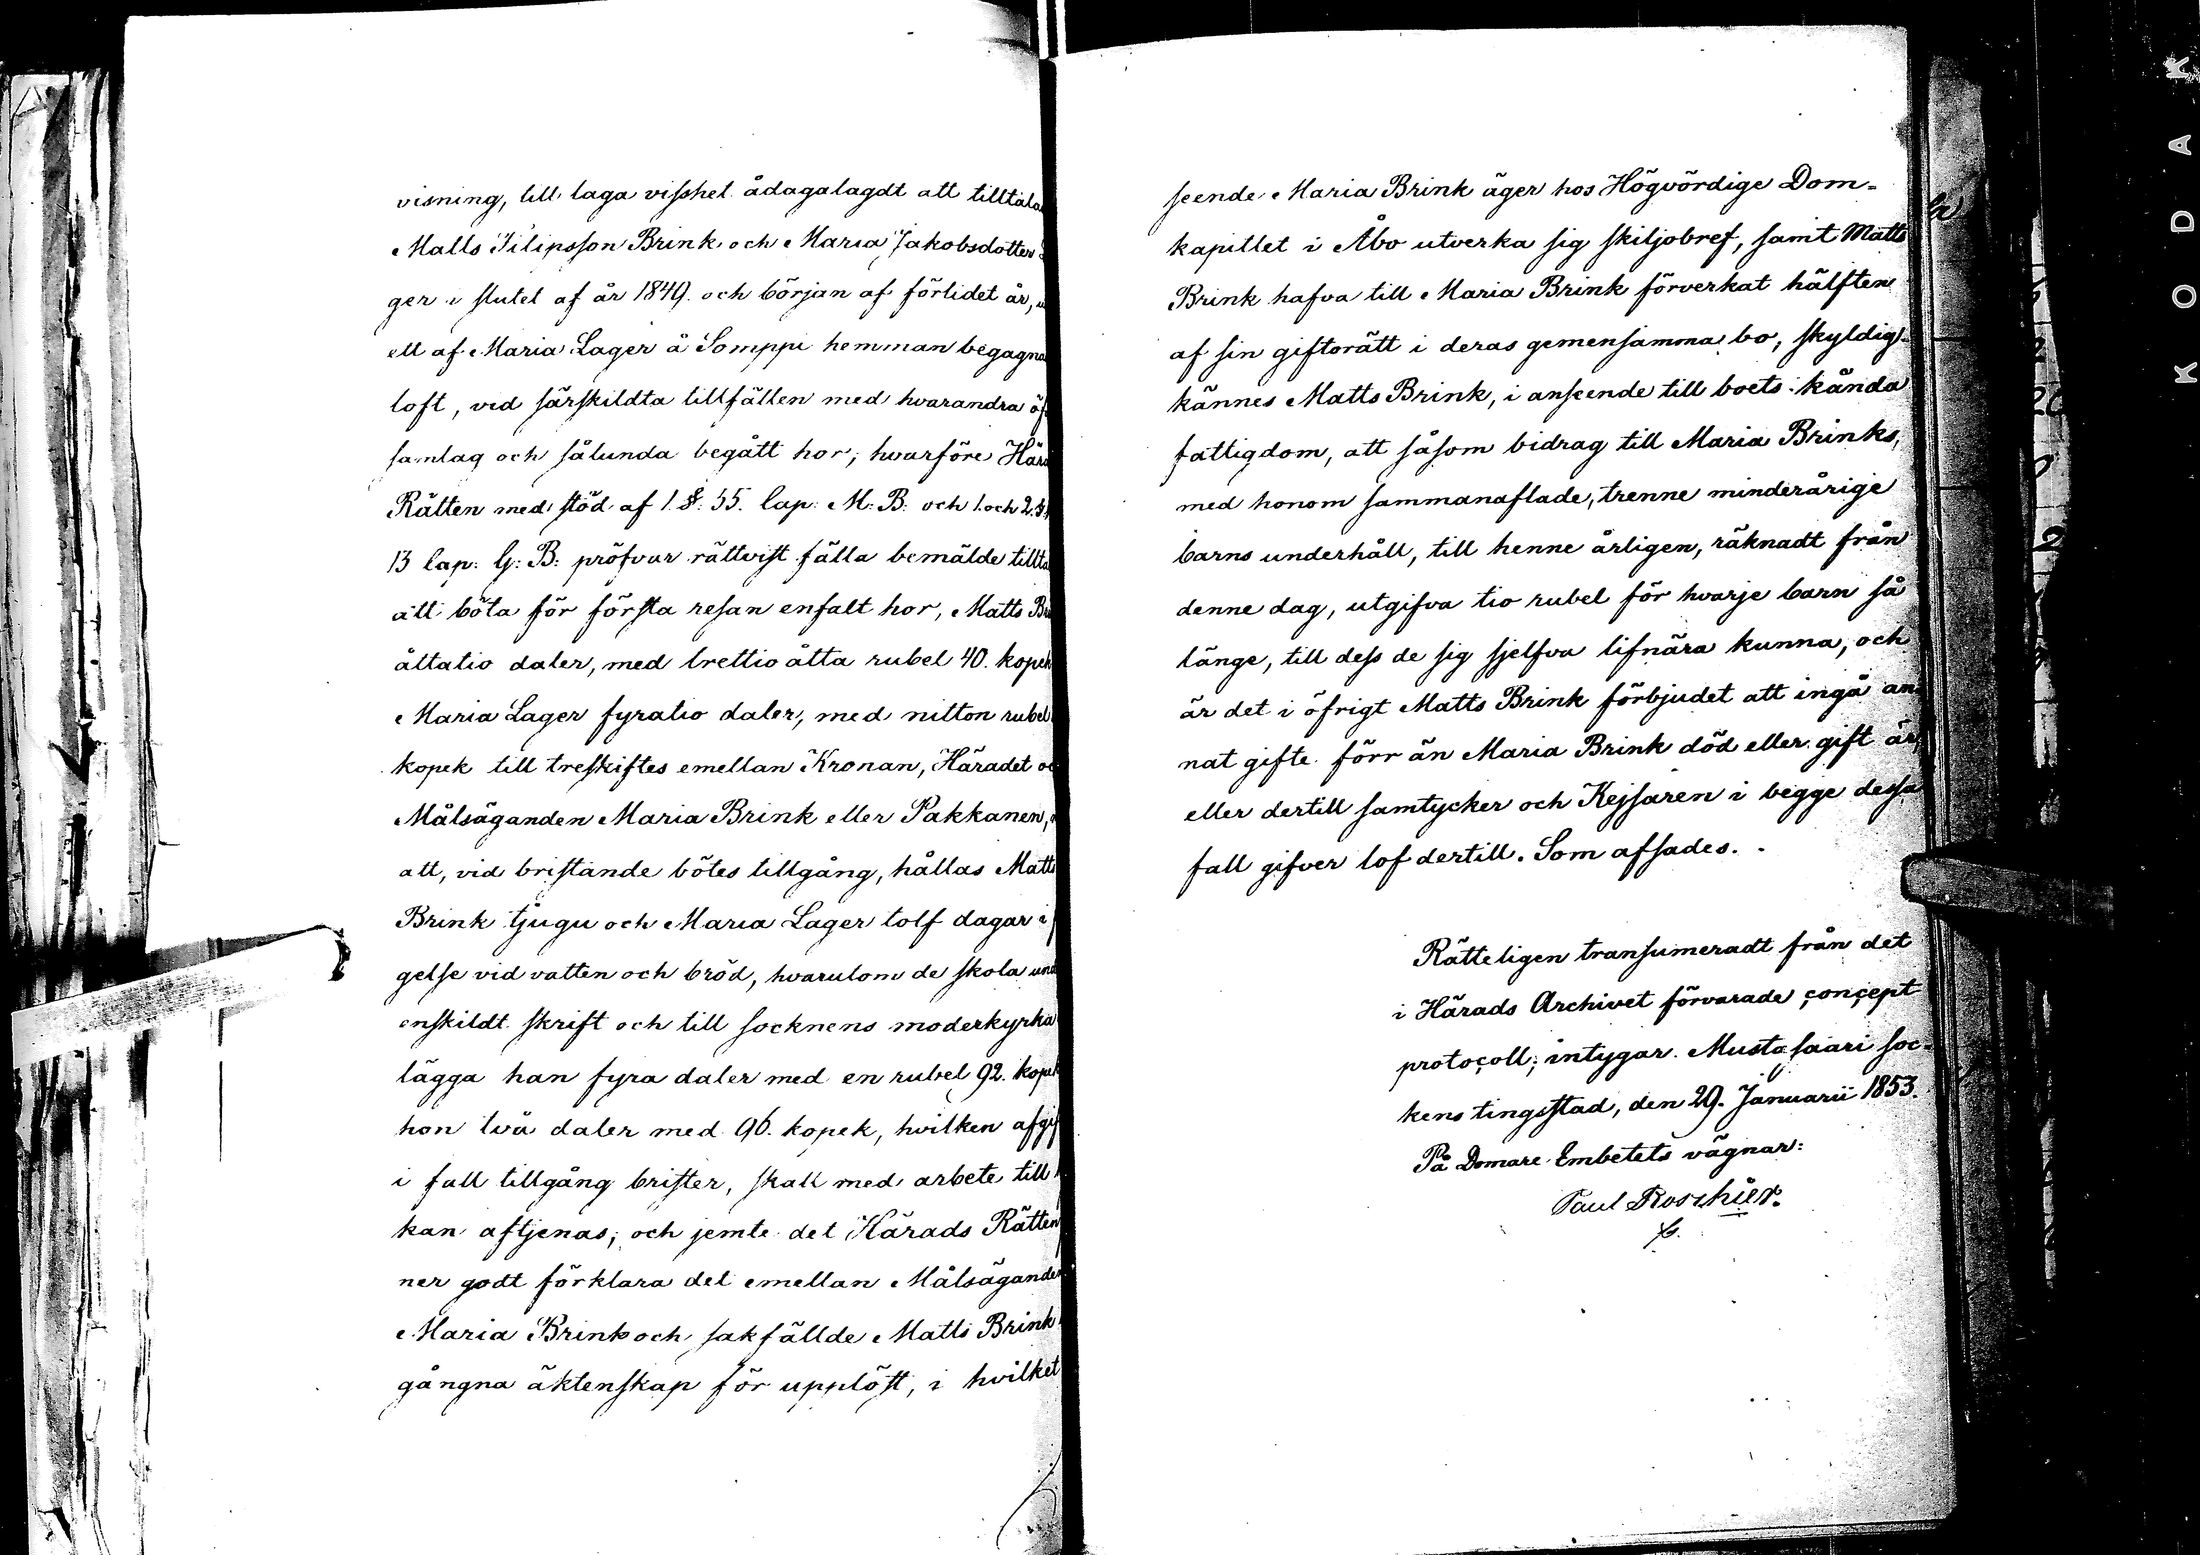 visning, till laga visshet ådagalagdt att tilltala
Matts Filipsson Brink och Maria Jakobsdotter
ger i slutet af år 1849. och början af förlidet år,
ett af Maria Lager å Somppi hemman begagna
loft, vid särskildta tillfällen med hvarandra öf
samlag och sålunda begått hor; hvarföre Hära
Rätten med stöd af 1. §. 55. Cap: M: B: och 1. och 2. §.
13 Cap: G: B: pröfvar rättvist fälla bemälde tillta
att böta för första resan enfalt hor, Matts Bri
åttatio daler, med trettio åtta rubel 40. kopek
Maria Lager fyratio daler, med nitton rubel
kopek till treskiftes emellan Kronan, Häradet oc
Målsäganden Maria Brink eller Pakkanen,
att, vid bristande bötes tillgång, hållas Matts
Brink tjugu och Maria Lager tolf dagar i f
gelse vid vatten och bröd, hvarutom de skola und
enskildt skrift och till socknens moderkyrka
lägga han fyra daler med en rubel 92. kopek
hon två daler med 96. kopek, hvilken afgif
i fall tillgång brister, skall med arbete till k
kan aftjenas; och jemte det Härads Rätten
ner godt förklara det emellan Målsäganden
Maria Brink och sakfällde Matts Brink
gångna äktenskap för upplöst, i hvilket
seende Maria Brink äger hos Högvördige Dom-
kapitlet i Åbo utverka sig skiljobref, samt Matts
Brink hafva till Maria Brink förverkat hälften
af sin giftorätt i deras gemensamma bo, skyldig-
kännes Matts Brink, i anseende till boets kända
fattigdom, att såsom bidrag till Maria Brinks,
med honom sammanaflade, trenne minderårige
barns underhåll, till henne årligen, räknadt från
denne dag, utgifva tio rubel för hvarje barn så
länge, till dess de sig sjelfva lifnära kunna, och
är det i öfrigt Matts Brink förbjudet att ingå an-
nat gifte förr än Maria Brink död eller gift är,
eller dertill samtycker och Kejsaren i begge dessa
fall gifver lof dertill. Som afsades.
Rätteligen transumeradt från det
i Härads Archivet förvarade concept
protocoll; intygar. Mustasaari soc-
kens tingsstad, den 29. Januarii 1853.
På Domare Embetets vägnar:
Paul Roschier.
KODAK